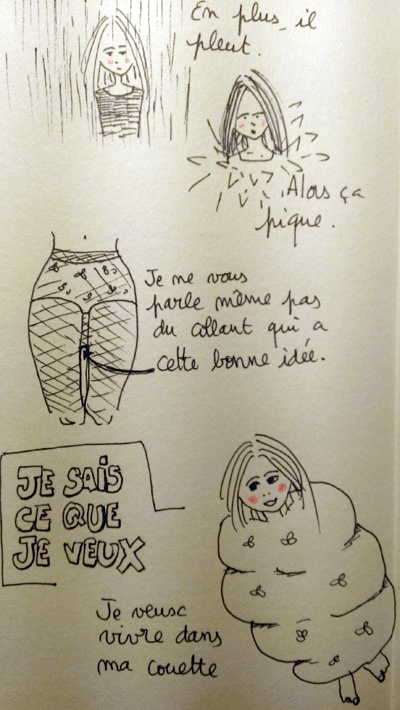 En plus, il
pleut.
Alors ça
pique.
Je ne vous
parle même pas
du collant qui a
cette bonne idée.
JE SAIS
CE QUE
JE VEUX
Je veux
vivre dans
ma couette